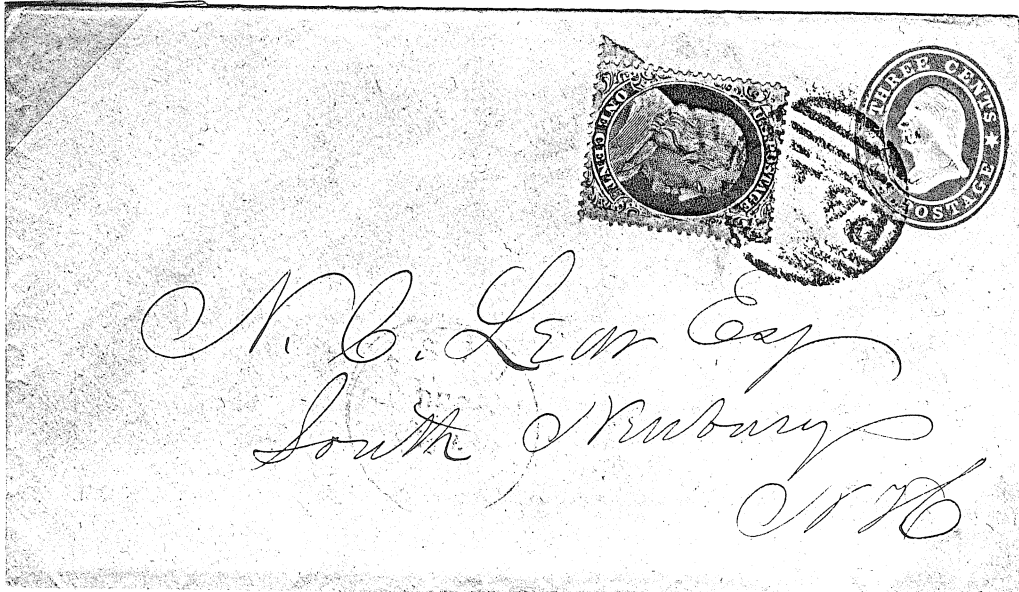 U.S. POSTAGE
ONE CENT
THREE CENTS
POSTAGE
N. C. Lear Esq
South Newbury
N H